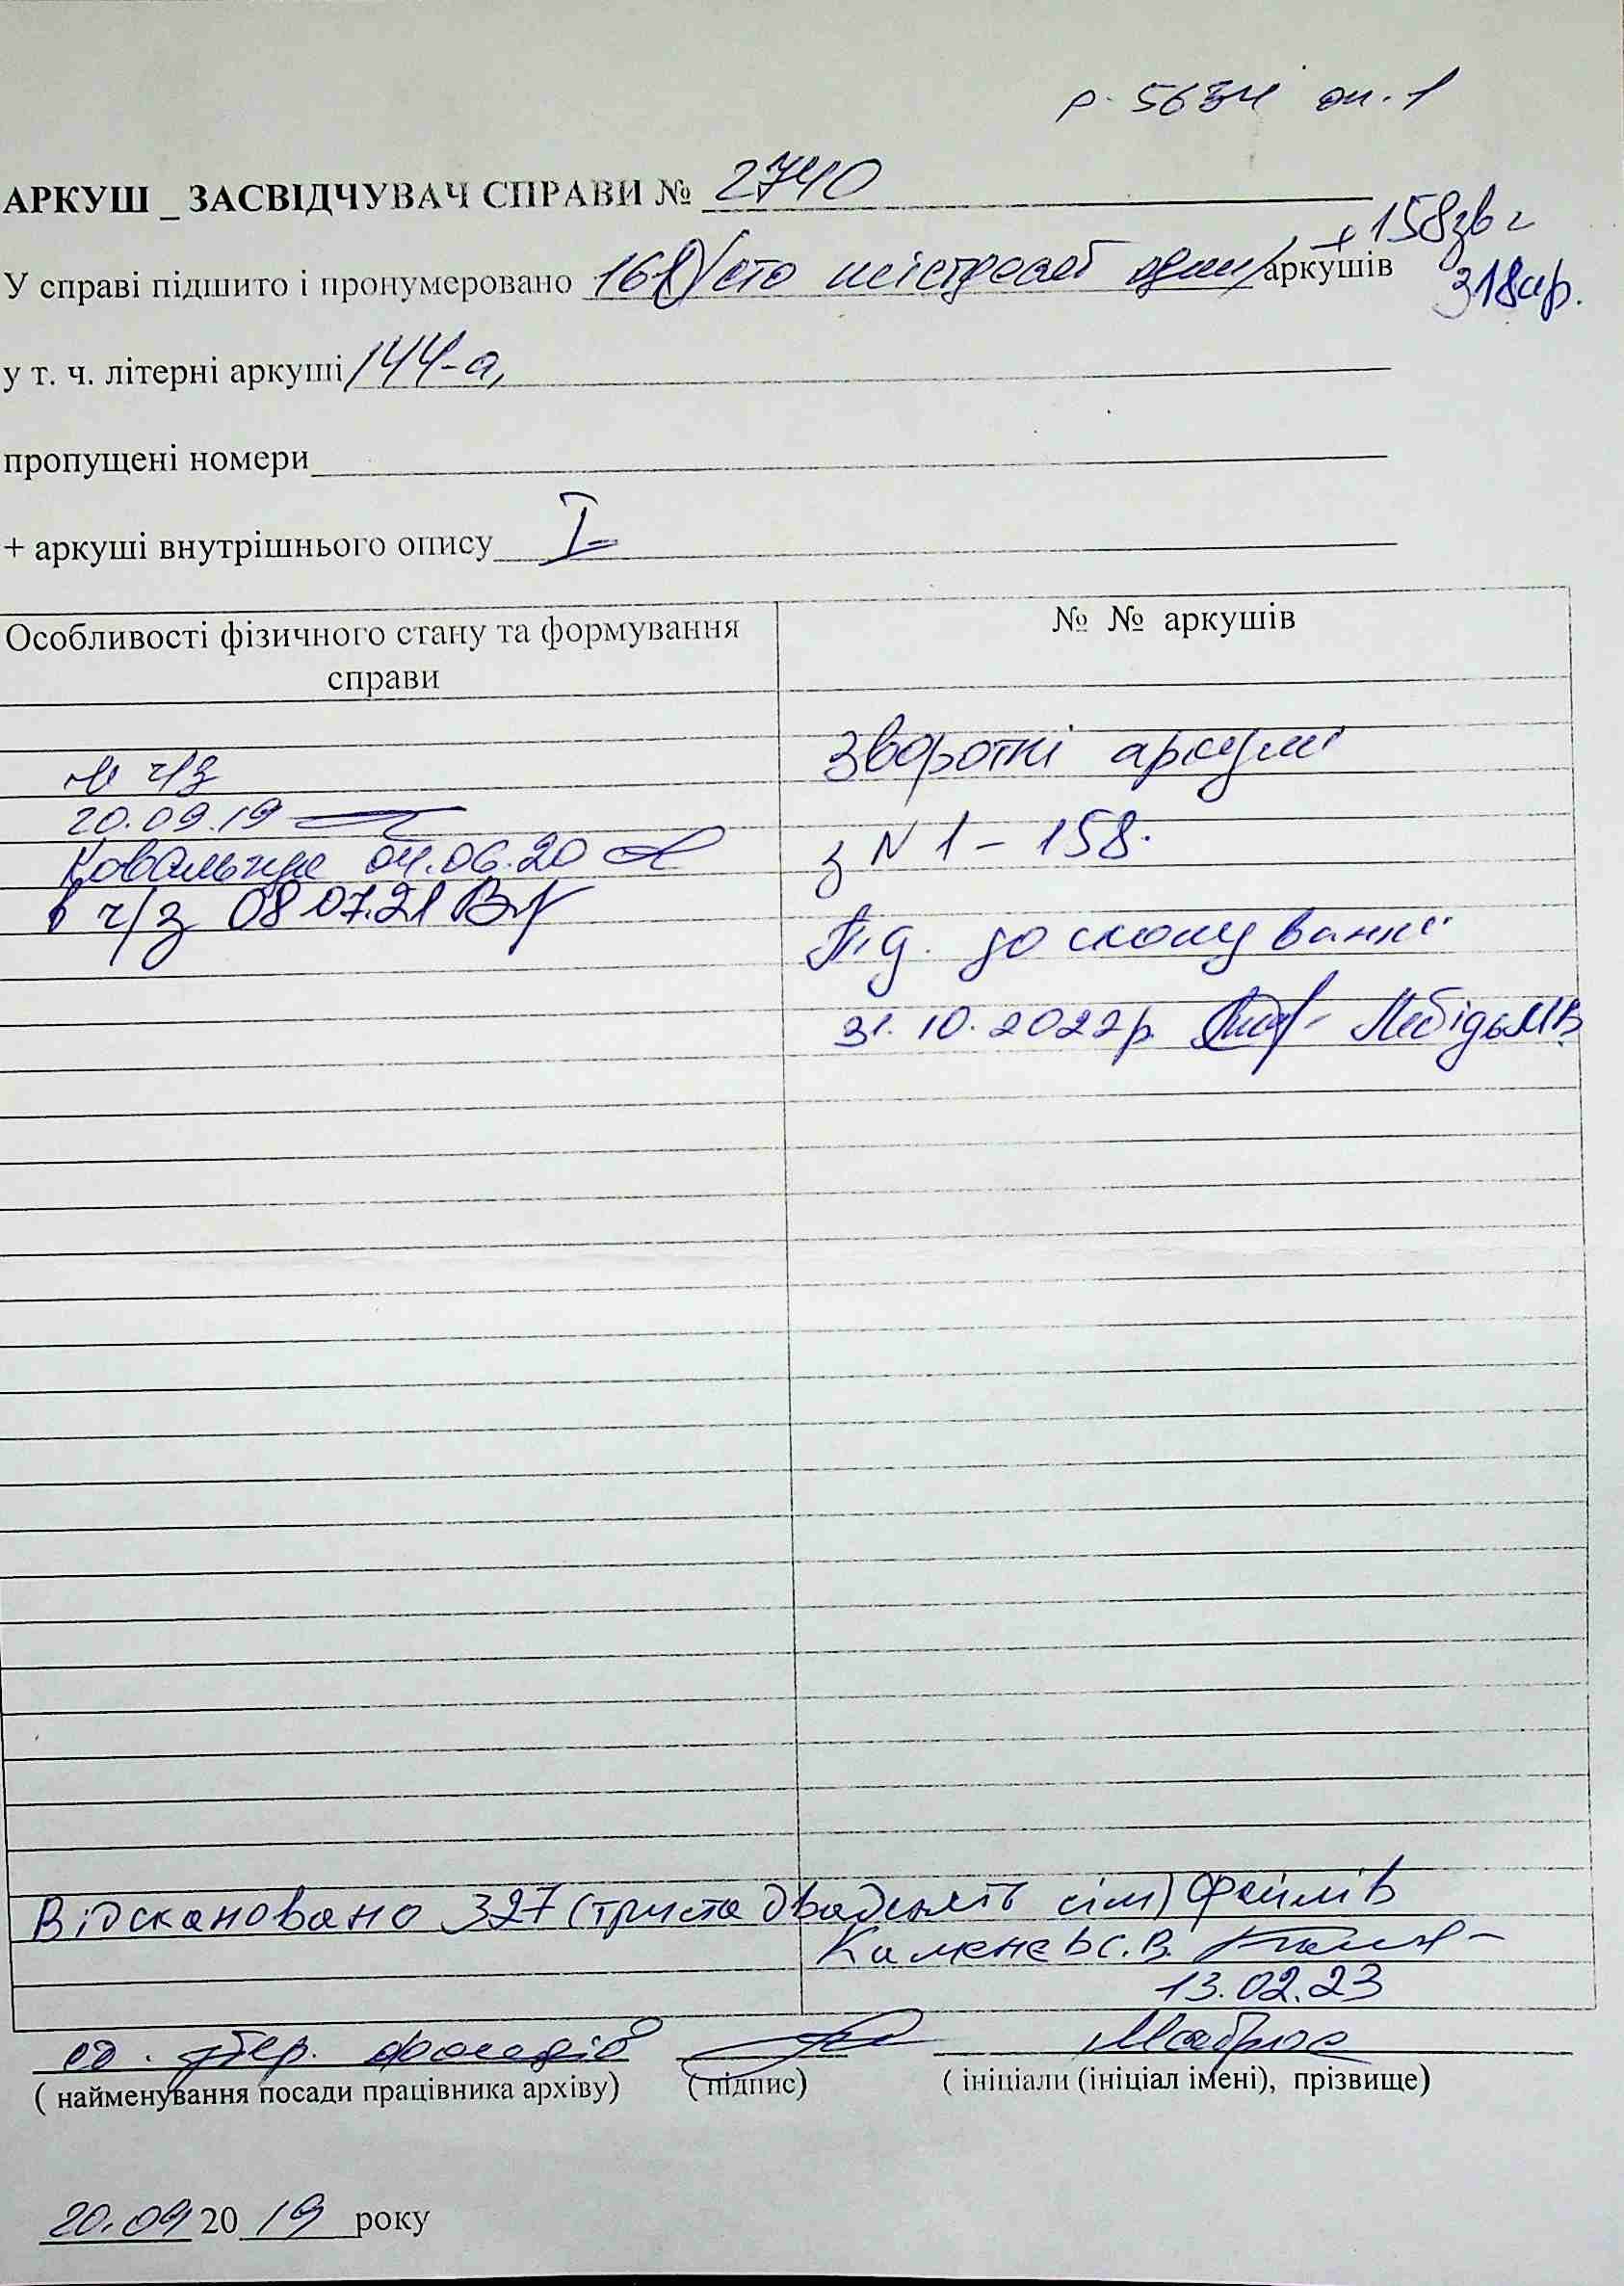 р. 5634 оп. 1
АРКУШ _ ЗАСВІДЧУВАЧ СПРАВИ № 2740
+158зв =
У справі підшито і пронумеровано 161 /сто шістдесят один/ аркушів
318ар.
у т. ч. літерні аркуші 144-а,
пропущені номери
+ аркуші внутрішнього опису I
Особливості фізичного стану та формування
справи
№ № аркушів
ч/з
20.09.19
04.06.20
в ч/з 08 07.21
Зворотні аркуші
з N 1 – 158.
Під. до сканування
31.10.2022р. Лебідь МВ
Відскановано 327 (триста двадцять сім) файлів
Каменєв С.В.
13.02.23
збер. фондів
( найменування посади працівника архіву)
( підпис)
( ініціали (ініціал імені), прізвище)
20.09 20 19 року